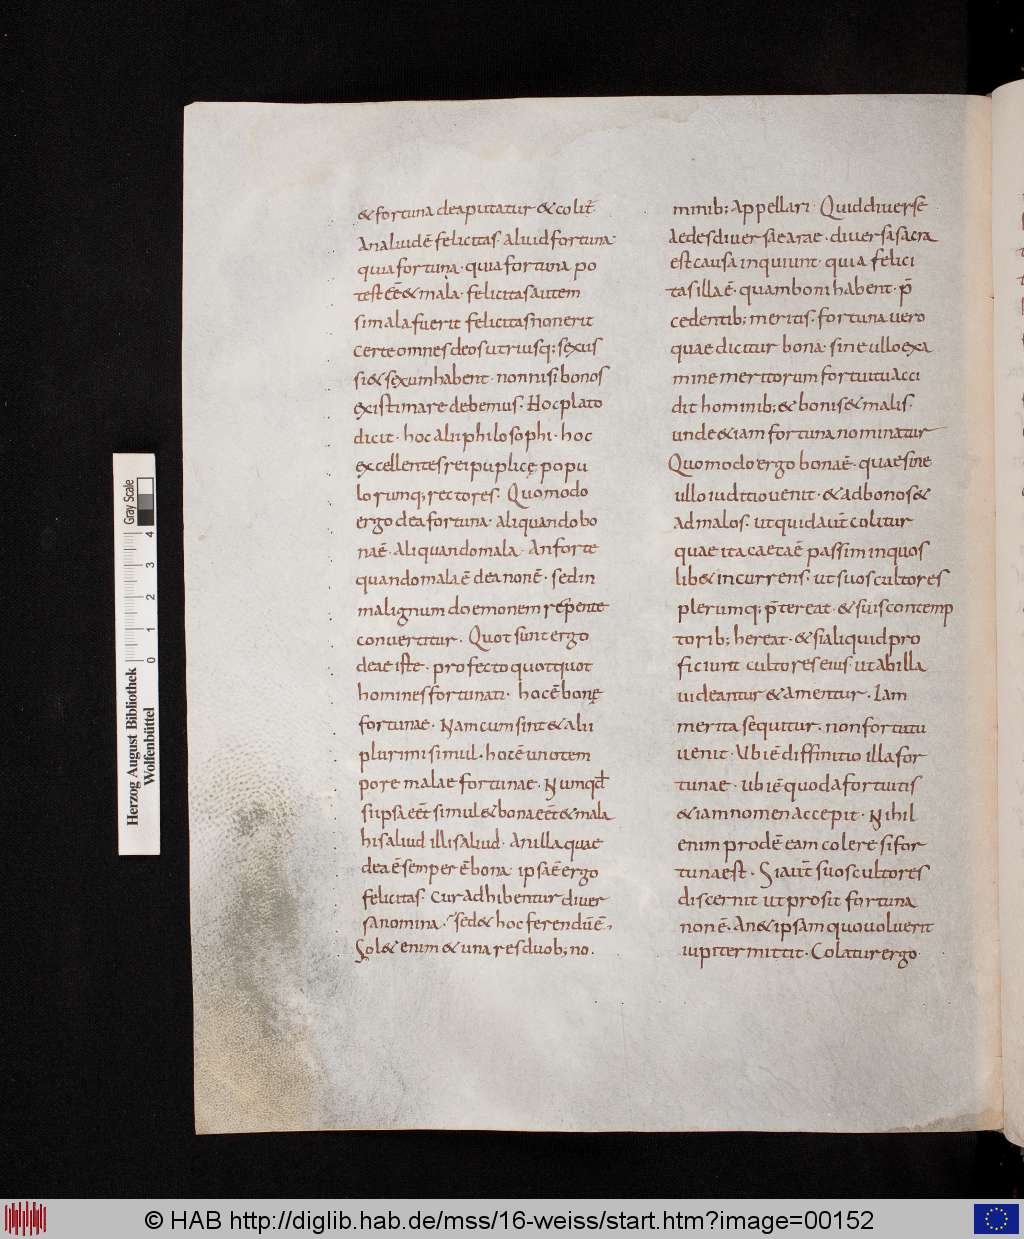 & fortuna dea putatur & colit̃.
An aliud ē felicitas. aliud fortuna.
quia fortuna. quia fortuna po
test eē & mala. felicitas autem
si mala fuerit felicitas non erit
certe omnes deos utriusq; sexus
si & sexum habent. non nisi bonos
existimare debemus. Hoc plato
dicit. hoc alii philosophi. hoc
excellentes rei puplicę popu
lorumq; rectores. Quomodo
ergo dea fortuna. aliquando bo
na ē. Aliquando mala. An forte
quando mala ē dea non ē. sed in
malignum doemonem repente
convertitur. Quot sunt ergo
deae iste. profecto quotquot
homines fortunati. hoc ē bonę
fortunae. Nam cum sint & alii
plurimi simul. hoc ē uno tem
pore malae fortunae. Numqd
si ipsa eēt simul & bona eēt & mala
his aliud illis aliud. An illa quae
dea ē semper ē bona. ipsa ē ergo
felicitas. Cur adhibentur diver
sa nomina. sed & hoc ferendū ē.
Sol& enim & una res duob; no.
minib; Appellari. Quid diversę
aedes diversae arae. diversa sacra
est causa inquiunt. quia felici
tas illa ē. quam boni habent. p̄
cedentib; meritis. fortuna vero
quae dicitur bona. sine ullo exa
mine meritorum fortuitu acci
dit hominib; & bonis & malis.
unde & iam fortuna nominatur
Quomodo ergo bona ē. quae sine
ullo iuditio venit. & ad bonos &
ad malos. ut quid aut̄ colitur
quae ita caeca ē passim in quos
lib& incurrens. ut suos cultores
plerumq; p̄tereat. & suis contemp
torib; hereat. & si aliquid pro
ficiunt cultores eius. ut ab illa
videantur & amentur. Iam
merita sequitur. non fortuitu
venit. Ubi ē diffinitio illa for
tunae. ubi ē quod a fortuitis
& iam nomen accepit. Nihil
enim prod ē eam colere si for
tuna est. Si aut̄ suos cultores
discernit ut prosit fortuna
non ē. An & ipsam quo voluerit
iupiter mittit. Colatur ergo
Herzog August Bibliothek
Wolfenbüttel
0 1 2 3 4
Gray Scale
© HAB http://diglib.hab.de/mss/16-weiss/start.htm?image=00152